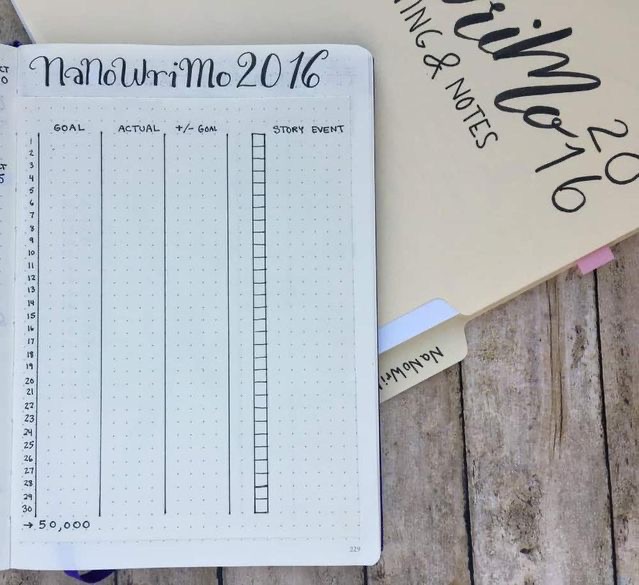 NaNoWriMo 2016
GOAL ACTUAL +/- GOAL STORY EVENT
1
2
3
4
5
6
7
8
9
10
11
12
13
14
15
16
17
18
19
20
21
22
23
24
25
26
27
28
29
30
→ 50,000
229
WriMo
2016
ING & NOTES
NaNoWri